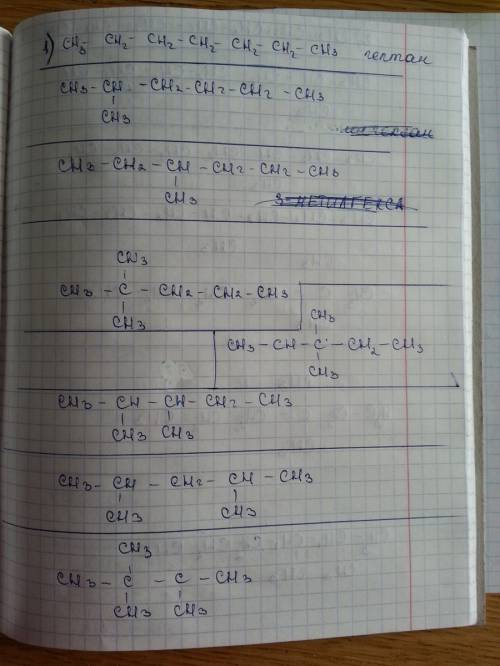 1) CH3 - CH2 - CH2 - CH2 - CH2 - CH2 - CH3 гептан
CH3 - CH - CH2 - CH2 - CH2 - CH3
CH3
CH3 - CH2 - CH - CH2 - CH2 - CH3
CH3
3-МЕТИЛГЕКСА
CH3
CH3 - C - CH2 - CH2 - CH3
CH3
CH3
CH3 - CH - C - CH2 - CH3
CH3
CH3 - CH - CH - CH2 - CH3
CH3 CH3
CH3 - CH - CH2 - CH - CH3
CH3 CH3
CH3
CH3 - C - C - CH3
CH3 CH3